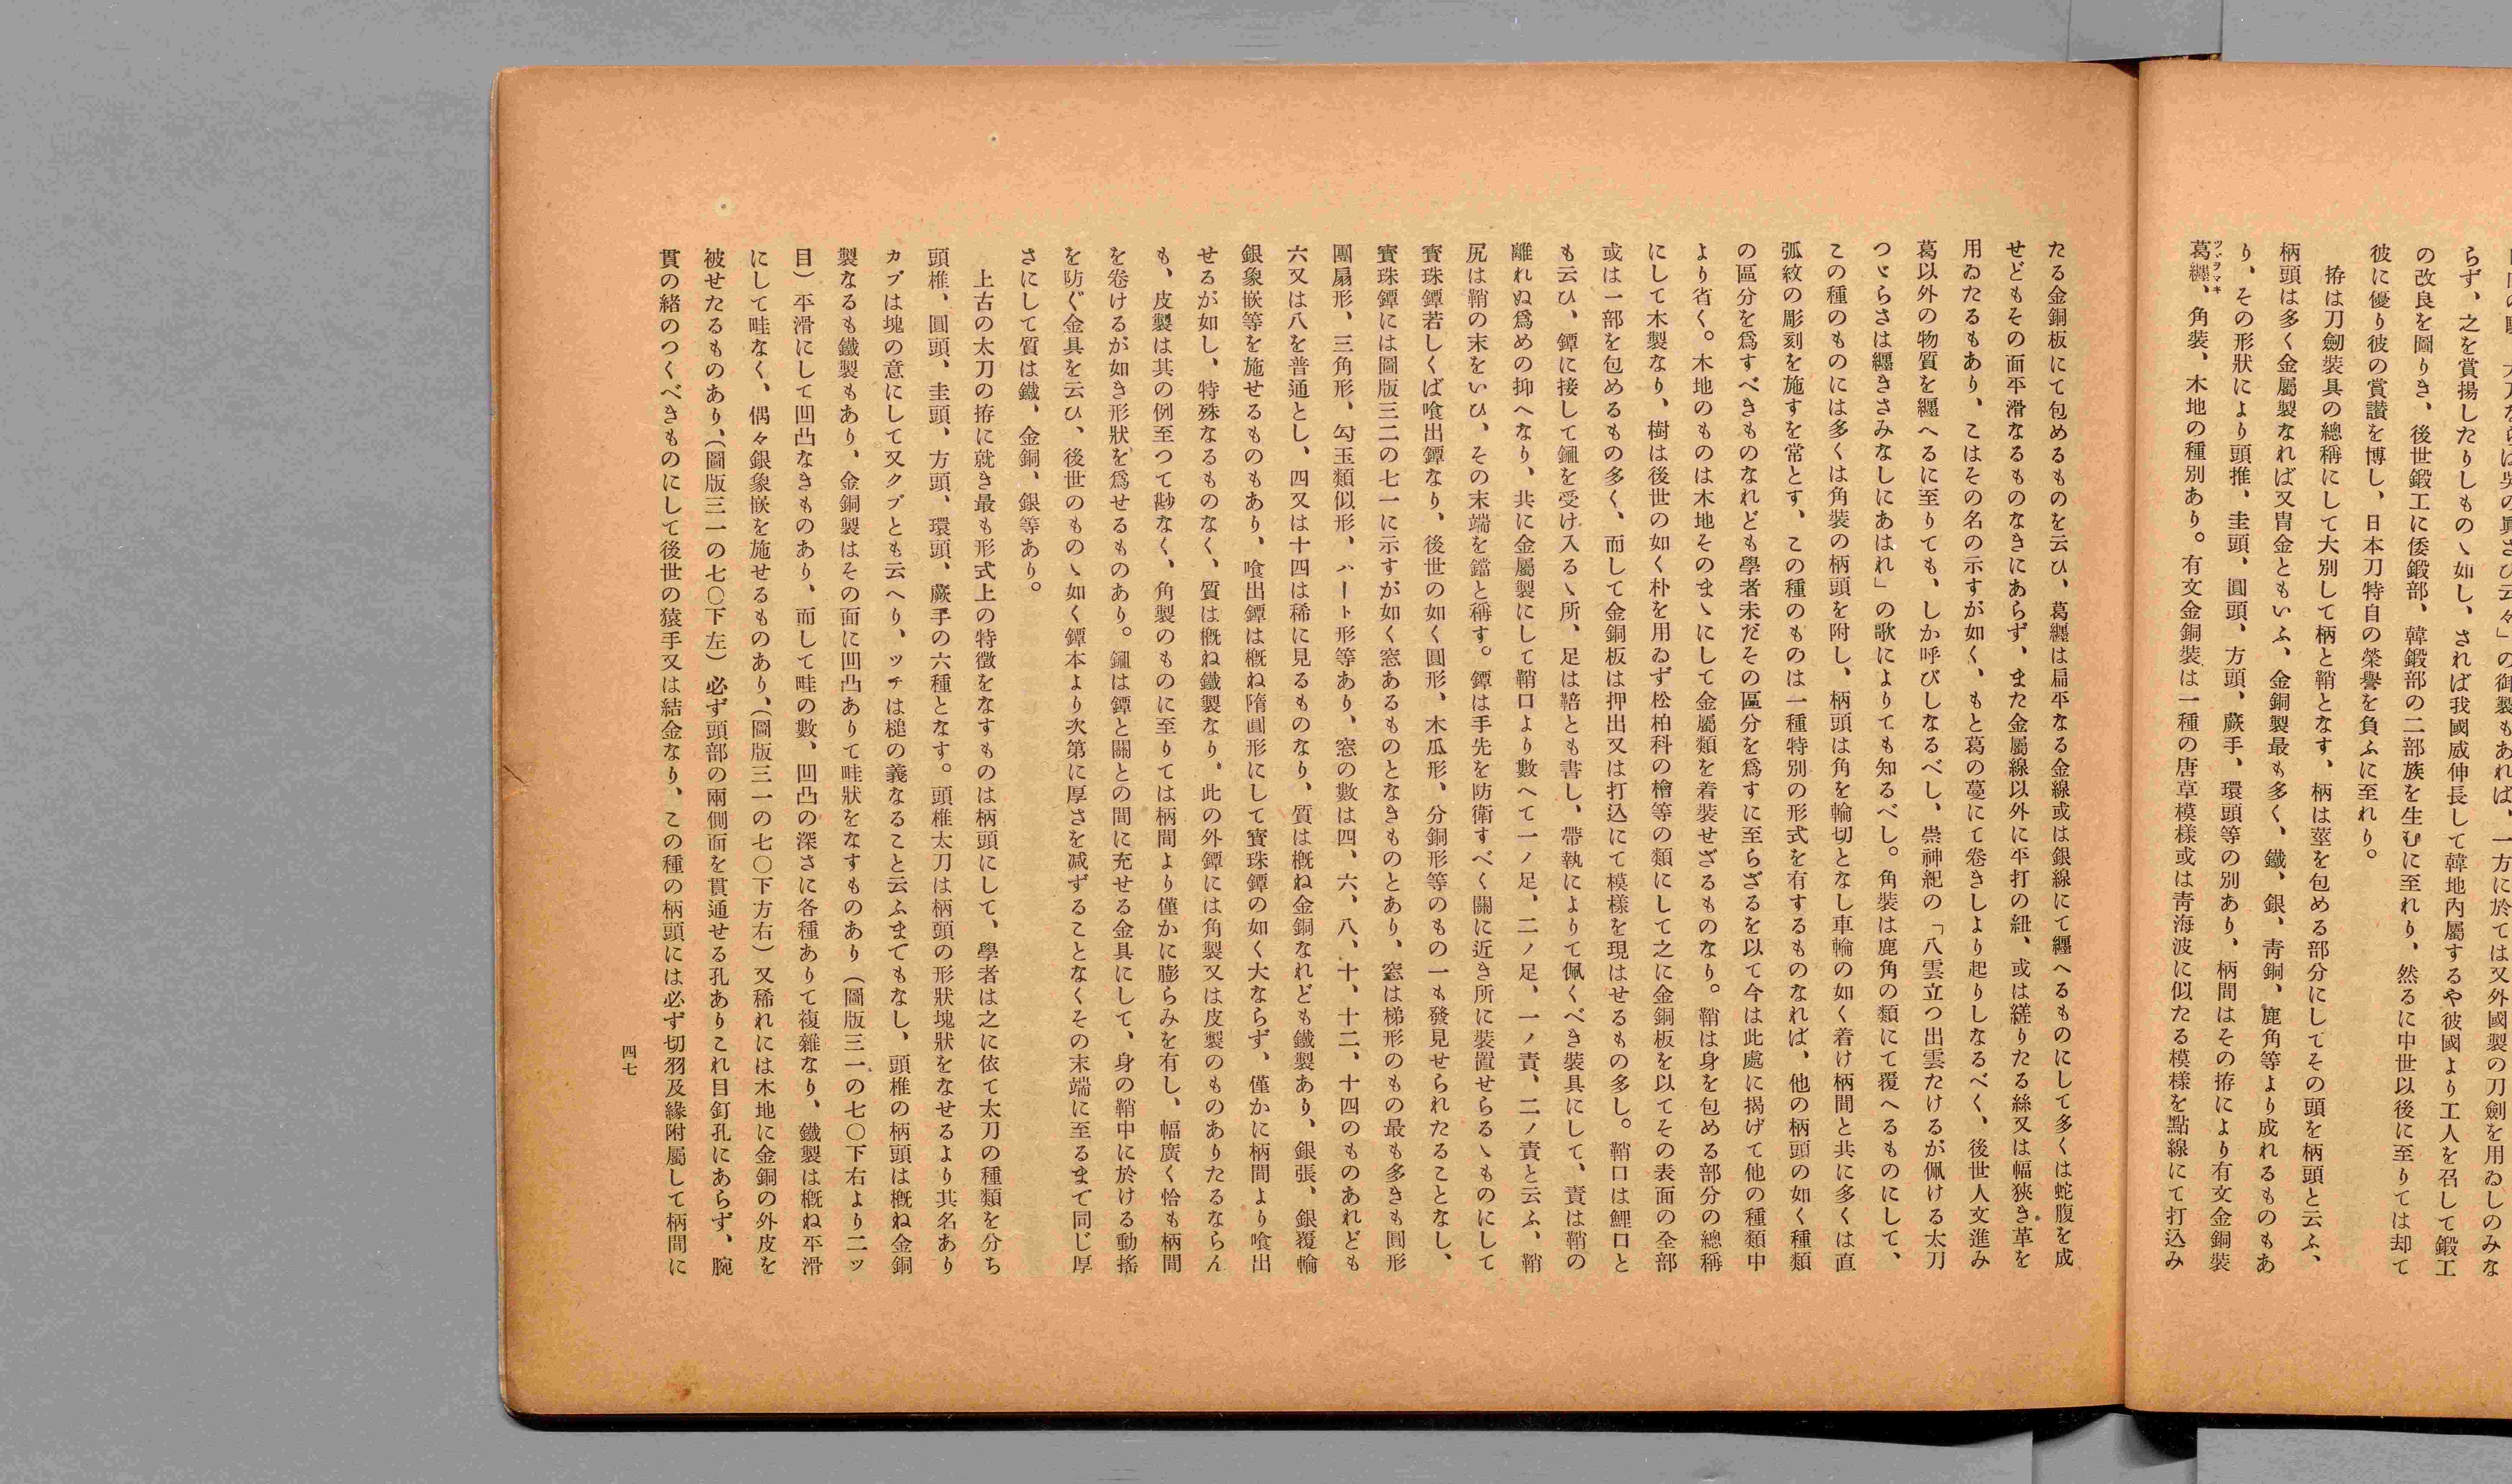 らず、之を賞揚したりしものゝ如し、されば我國威伸長して韓地內屬するや彼國より工人を召して鍛工
の改良を圖りき、後世鍛工に倭鍛部、韓鍛部の二部族を生むに至れり、然るに中世以後に至りては却て
彼に優り彼の賞讃を博し、日本刀特自の榮譽を負ふに至れり。
拵は刀劒裝具の總稱にして大別して柄と鞘となす、柄は莖を包める部分にしてその頭を柄頭と云ふ、
柄頭は多く金屬製なれば又冑金ともいふ、金銅製最も多く、鐵、銀、靑銅、鹿角等より成れるものもあ
り、その形狀により頭推、圭頭、圓頭、方頭、蕨手、環頭等の別あり、柄間はその拵により有文金銅裝
葛纒、角裝、木地の種別あり。有文金銅裝は一種の唐草模樣或は靑海波に似たる模樣を點線にて打込み
たる金銅板にて包めるものを云ひ、葛纒は扁平なる金線或は銀線にて纒へるものにして多くは蛇腹を成
せどもその面平滑なるものなきにあらず、また金屬線以外に平打の紐、或は縒りたる絲又は幅狹き革を
用ゐたるもあり、こはその名の示すが如く、もと葛の蔓にて卷きしより起りしなるべく、後世人文進み
葛以外の物質を纒へるに至りても、しか呼びしなるべし、崇神紀の「八雲立つ出雲たけるが佩ける太刀
つゞらさは纒きさみなしにあはれ」の歌によりても知るべし。角裝は鹿角の類にて覆へるものにして、
この種のものには多くは角裝の柄頭を附し、柄頭は角を輪切となし車輪の如く着け柄間と共に多くは直
弧紋の彫刻を施すを常とす、この種のものは一種特別の形式を有するものなれば、他の柄頭の如く種類
の區分を爲すべきものなれども學者未だその區分を爲すに至らざるを以て今は此處に揭げて他の種類中
より省く。木地のものは木地そのまゝにして金屬類を着裝せざるものなり。鞘は身を包める部分の總稱
にして木製なり、樹は後世の如く朴を用ゐず松柏科の檜等の類にして之に金銅板を以てその表面の全部
或は一部を包めるもの多く、而して金銅板は押出又は打込にて模樣を現はせるもの多し。鞘口は鯉口と
も云ひ、鐔に接して鎺を受け入るゝ所、足は䩞とも書し、帶執によりて佩くべき裝具にして、責は鞘の
離れぬ爲めの抑へなり、共に金屬製にして鞘口より數へて一ノ足、二ノ足、一ノ責、二ノ責と云ふ、鞘
尻は鞘の末をいひ、その末端を鐺と稱す。鐔は手先を防衛すべく關に近き所に裝置せらるゝものにして
寳珠鐔若しくば喰出鐔なり、後世の如く圓形、木瓜形、分銅形等のもの一も發見せられたることなし、
寳珠鐔には圖版三二の七一に示すが如く窓あるものとなきものとあり、窓は梯形のもの最も多きも圓形
團扇形、三角形、勾玉類似形、ハート形等あり、窓の數は四、六、八、十、十二、十四のものあれども
六又は八を普通とし、四又は十四は稀に見るものなり、質は槪ね金銅なれども鐵製あり、銀張、銀覆輪
銀象嵌等を施せるものもあり、喰出鐔は槪ね隋圓形にして寳珠鐔の如く大ならず、僅かに柄間より喰出
せるが如し、特殊なるものなく、質は槪ね鐵製なり。此の外鐔には角製又は皮製のものありたるならん
も、皮製は其の例至つて尠なく、角製のものに至りては柄間より僅かに膨らみを有し、幅廣く恰も柄間
を卷けるが如き形狀を爲せるものあり。鎺は鐔と關との間に充せる金具にして、身の鞘中に於ける動搖
を防ぐ金具を云ひ、後世のものゝ如く鐔本より次第に厚さを減ずることなくその末端に至るまて同じ厚
さにして質は鐵、金銅、銀等あり。
上古の太刀の拵に就き最も形式上の特徵をなすものは柄頭にして、學者は之に依て太刀の種類を分ち
頭椎、圓頭、圭頭、方頭、環頭、蕨手の六種となす。頭椎太刀は柄頭の形狀塊狀をなせるより其名あり
カブは塊の意にして又クブとも云へり、ツチは槌の義なること云ふまてもなし、頭椎の柄頭は槪ね金銅
製なるも鐵製もあり、金銅製はその面に凹凸ありて畦狀をなすものあり(圖版三一の七〇下右より二ッ
目)平滑にして凹凸なきものあり、而して畦の數、凹凸の深さに各種ありて複雜なり、鐵製は槪ね平滑
にして畦なく、偶々銀象嵌を施せるものあり、(圖版三一の七〇下方右)又稀れには木地に金銅の外皮を
被せたるものあり、(圖版三一の七〇下左)必ず頭部の兩側面を貫通せる孔ありこれ目釘孔にあらず、腕
貫の緒のつくべきものにして後世の猿手又は結金なり、この種の柄頭には必ず切羽及緣附屬して柄間に
四七